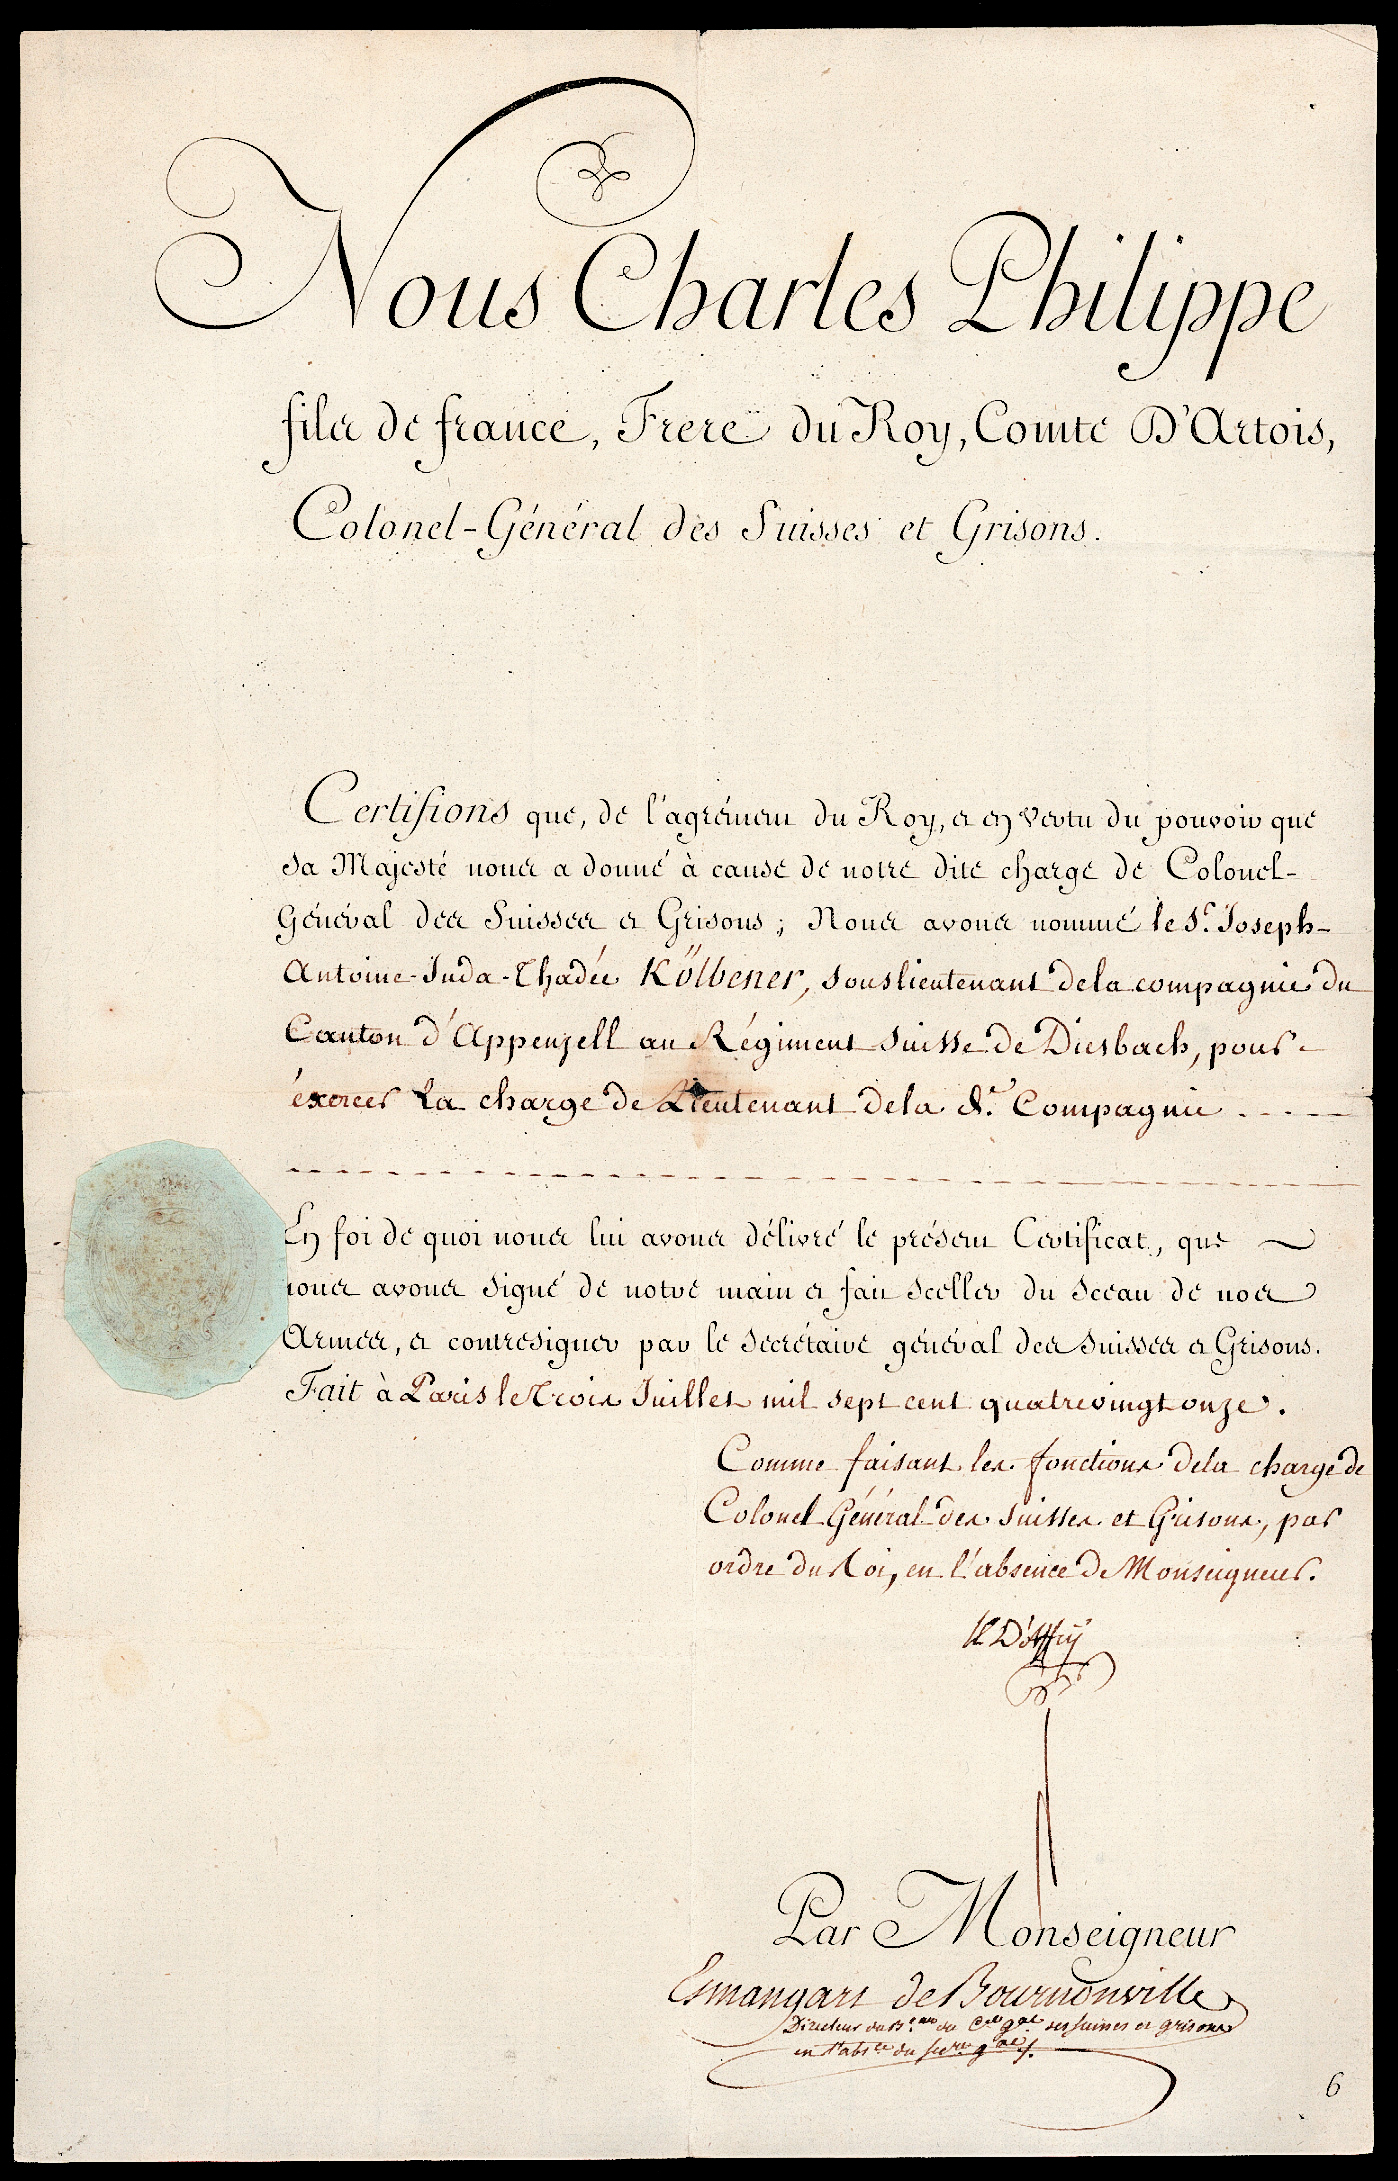 Nous Charles Philippe
fils de france, Frere du Roy, Comte D'Artois,
Colonel-Général des Suisses et Grisons.
Certifions que, de l'agrément du Roy, et en vertu du pouvoir que
Sa Majesté nous a donné à cause de notre dite charge de Colonel-
Général des Suisses et Grisons; Nous avons nommé le Sr. Joseph-
Antoine-Juda-Thadée Kölbener, souslieutenant dela compagnie du
Canton d'Appenzell au Régiment Suisse de Diesbach, pour
éxercer la charge de Lieutenant dela de. Compagnie
En foi de quoi nous lui avons délivré le présent Certificat, que
nous avons signé de notre main et fait sceller du Sceau de nos
Armes, et contresigner par le Secrétaire général des Suisses et Grisons.
Fait à Paris le Trois Juillet mil sept cent quatrevingt onze.
Comme faisant les fonctions dela charge de
Colonel Général des Suisses et Grisons, par
ordre du Roi, en l'absence de Monseigneur.
D'Affry
Par Monseigneur
Esmangart de Bournonville
Directeur du Beau du Cel gal des suisses et grisons
en l'absce du secre gal
6